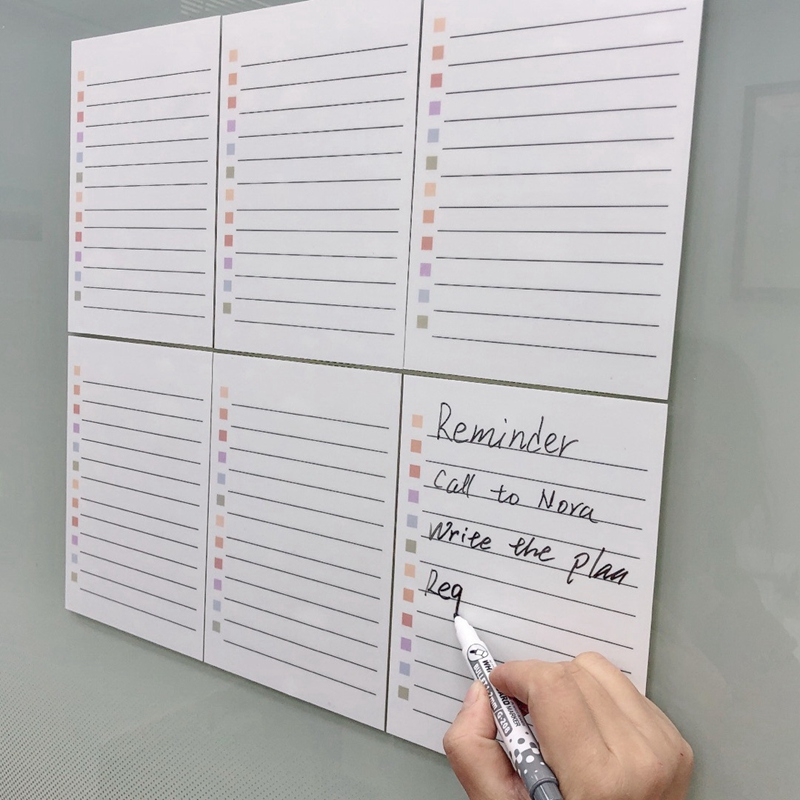 Reminder
Call to Nora
Write the plan
Reg